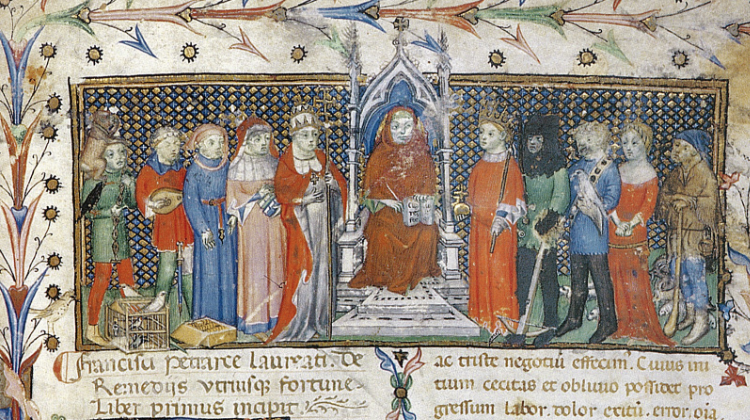 Francisci petrarce laureati. De
Remedijs vtriusqꝫ fortune
Liber primus incipit
ac triste negotiū effecim. Cuius ini
tium cecitas et obliuio possidet pro
gressum labor. dolor exitū. error